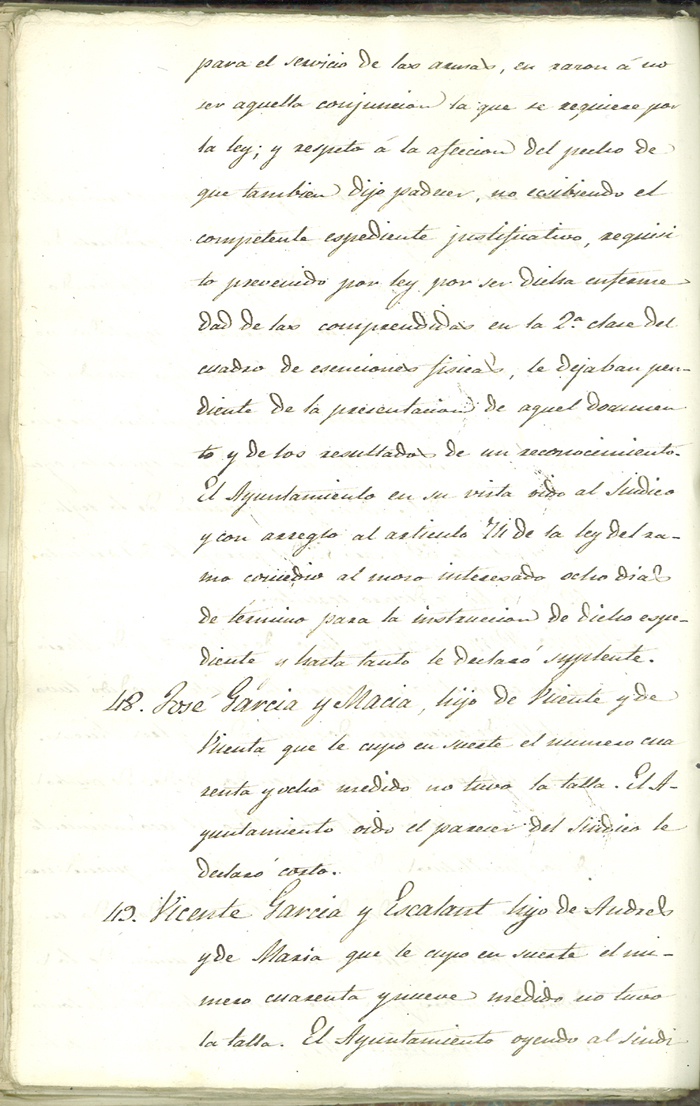 para el servicio de las armas, en razon á no
ser aquella conjuncion la que se requiere por
la ley; y respeto á la afeccion del pecho de
que tambien dijo padecer, no ecsibiendo el
competente espediente justificativo, requisi
to prevenido por ley por ser dicha enferme
dad de las comprendidas en la 2.ª clase del
cuadro de esenciones fisicas, le dejaban pen-
diente de la presentacion de aquel documen
to y de los resultados de un reconocimiento.
El Ayuntamiento en su vista oido al Sindico
y con arreglo al articulo 74 de la ley del ra-
mo concedio al moso interesado ocho dias
de término para la instruccion de dicho espe-
diente y hasta tanto le declaró suplente.
48. José Garcia y Macia, hijo de Vicente y de
Vicenta que le cupo en suerte el numero cua
renta y ocho medido no tuvo la talla. El A-
yuntamiento oido el parecer del Sindico le
declaró corto.
49. Vicente Garcia y Escalant hijo de Andres
y de Maria que le cupo en suerte el nu-
mero cuarenta y nueve medido no tuvo
la talla. El Ayuntamiento oyendo al sindi